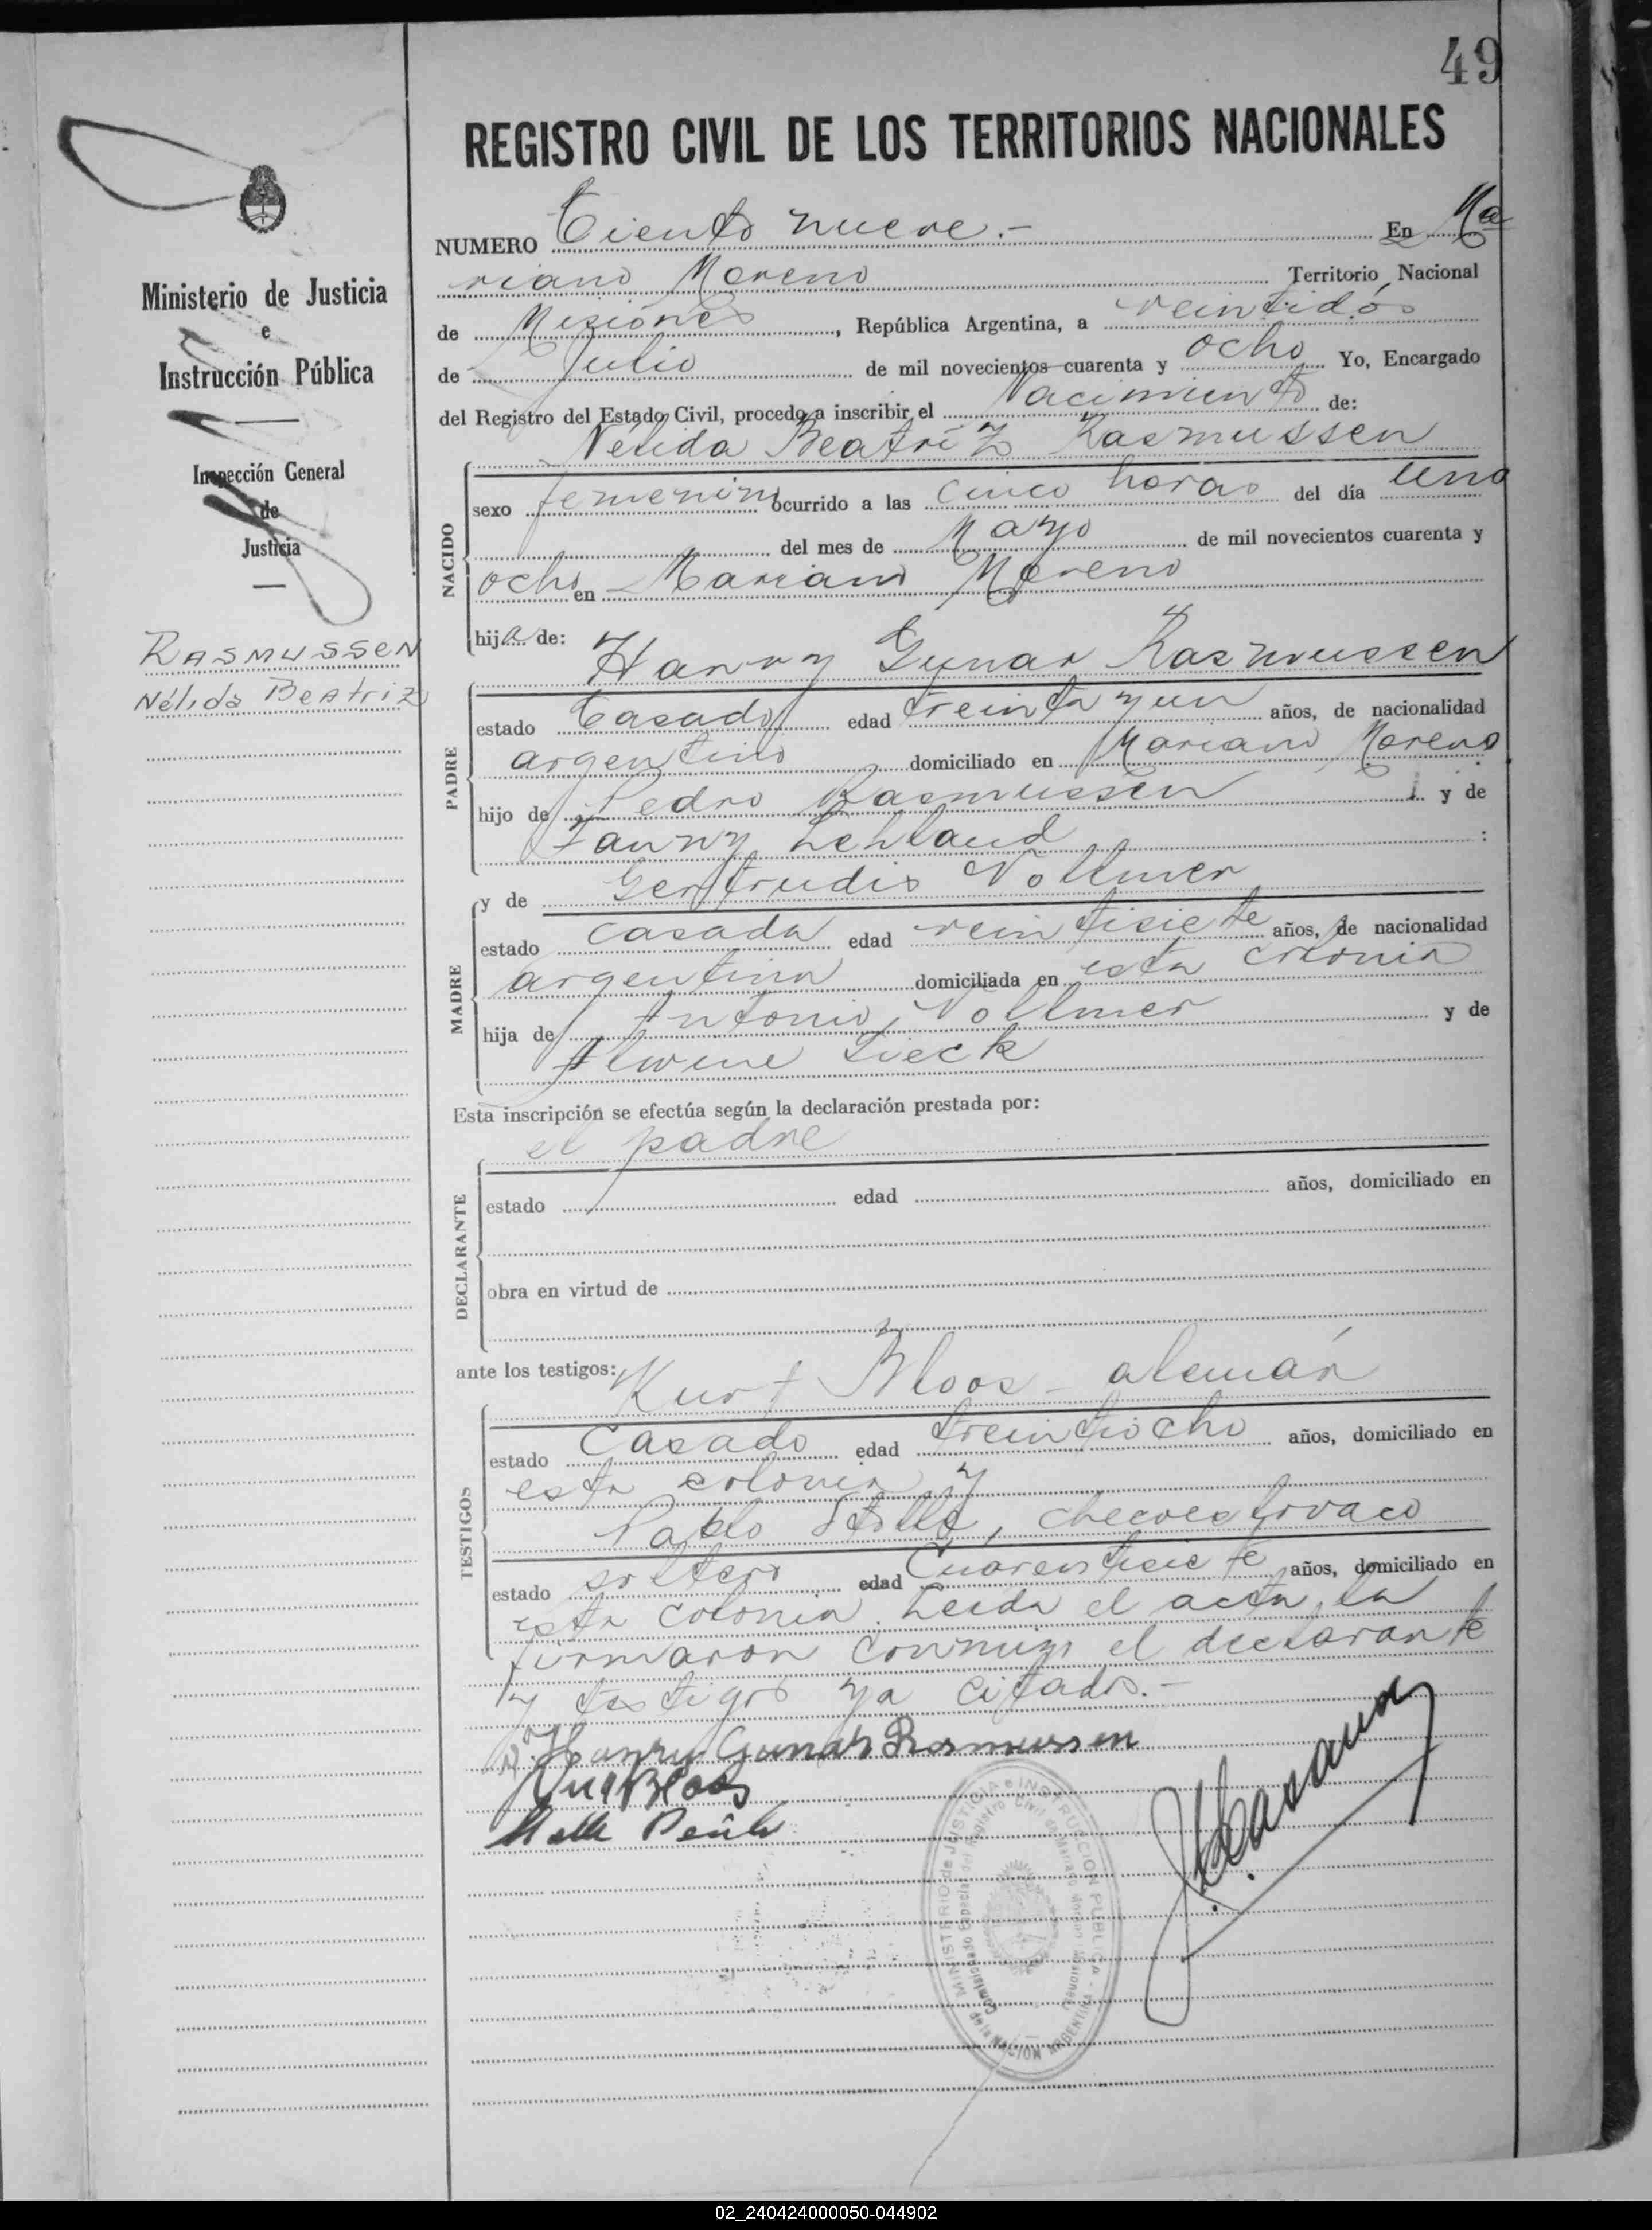 49
REGISTRO CIVIL DE LOS TERRITORIOS NACIONALES
NUMERO Ciento nueve.- En Ma
riano Moreno Territorio Nacional
de Misiones, República Argentina, a veintidós
de Julio de mil novecientos cuarenta y ocho Yo, Encargado
del Registro del Estado Civil, procedo a inscribir el Nacimiento de:
Nelida Beatriz Rasmussen
NACIDO
sexo femenino ocurrido a las cinco horas del día uno
del mes de Mayo de mil novecientos cuarenta y
ocho en Mariano Moreno
hija de: Harry Gunar Rasmussen
PADRE
estado Casado edad treinta y un años, de nacionalidad
argentino domiciliado en Mariano Moreno
hijo de Pedro Rasmussen y de
Fanny
y de Gertrudis Vollmer
MADRE
estado casada edad veintisiete años, de nacionalidad
argentina domiciliada en esta colonia
hija de Antonio Vollmer y de
Alwine
Esta inscripción se efectúa según la declaración prestada por:
el padre
DECLARANTE
estado edad años, domiciliado en
obra en virtud de
ante los testigos: Kurt Bloos - alemán
TESTIGOS
estado Casado edad treintiocho años, domiciliado en
esta colonia y
Pablo checoeslovaco
estado soltero edad Cuarentisiete años, domiciliado en
esta colonia. Leida el acta, la
firmaron conmigo el declarante
y testigos ya citados.-
Harry Gunar Rasmussen
Kurt Bloos
MINISTERIO de JUSTICIA e INSTRUCCION PUBLICA
de la NACION ARGENTINA
Ministerio de Justicia
e
Instrucción Pública
Inspección General
de
Justicia
RASMUSSEN
Nélida Beatriz
02_240424000050-044902